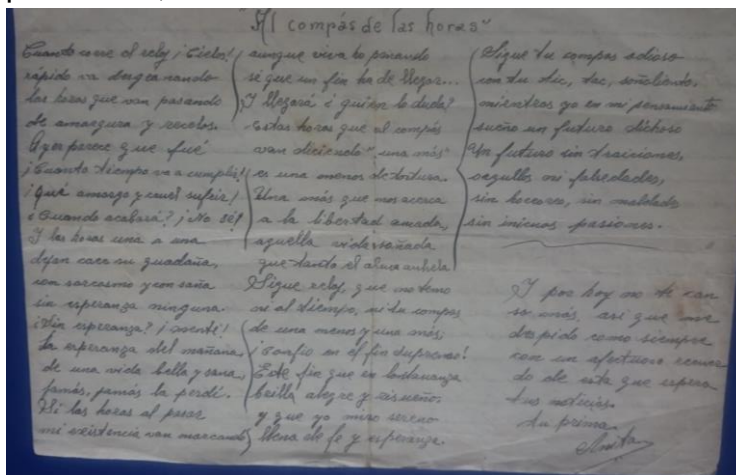 "Al compás de las horas"
Cuando corre el reloj ¡Cielos!
rápido va desgranando
las horas que van pasando
de amargura y recelos.
Ayer parece que fué
¡Cuanto tiempo va a cumplir!
¡Qué amargo y cruel sufrir!
¿Cuando acabará? ¡No sé!
Y las horas una a una
dejan caer su guadaña,
con sarcasmo y con saña
sin esperanza ninguna.
¿Sin esperanza? ¡mentí!
La esperanza del mañana
de una vida bella y sana,
jamás, jamás la perdí.
Si las horas al pasar
mi existencia van marcando
aunque viva lo penando
sé que un fin ha de llegar...
Y llegará ¿quién lo duda?
Estas horas que al compás
van diciendo "una más"
es una menos de tortura.
Una más que nos acerca
a la libertad amada,
aquella vida soñada
que tanto el alma anhela
Sigue reloj, que no temo
ni al tiempo, ni tu compas
de una menos y una más,
¡Confío en el fin supremo!
Este fin que en lontananza
brilla alegre y risueño
y que yo miro sereno
llena de fe y esperanza.
Sigue tu compas odioso
con tu tic, tac, soñoliento,
mientras yo en mi pensamiento
sueño un futuro dichoso
Un futuro sin traiciones,
orgullos ni falsedades,
sin horrores, sin maldades
sin pasiones.
Y por hoy no te can
so más, así que me
despido como siempre
con un afectuoso recuer
do de esta que espera
tus noticias.
tu prima.
Anita